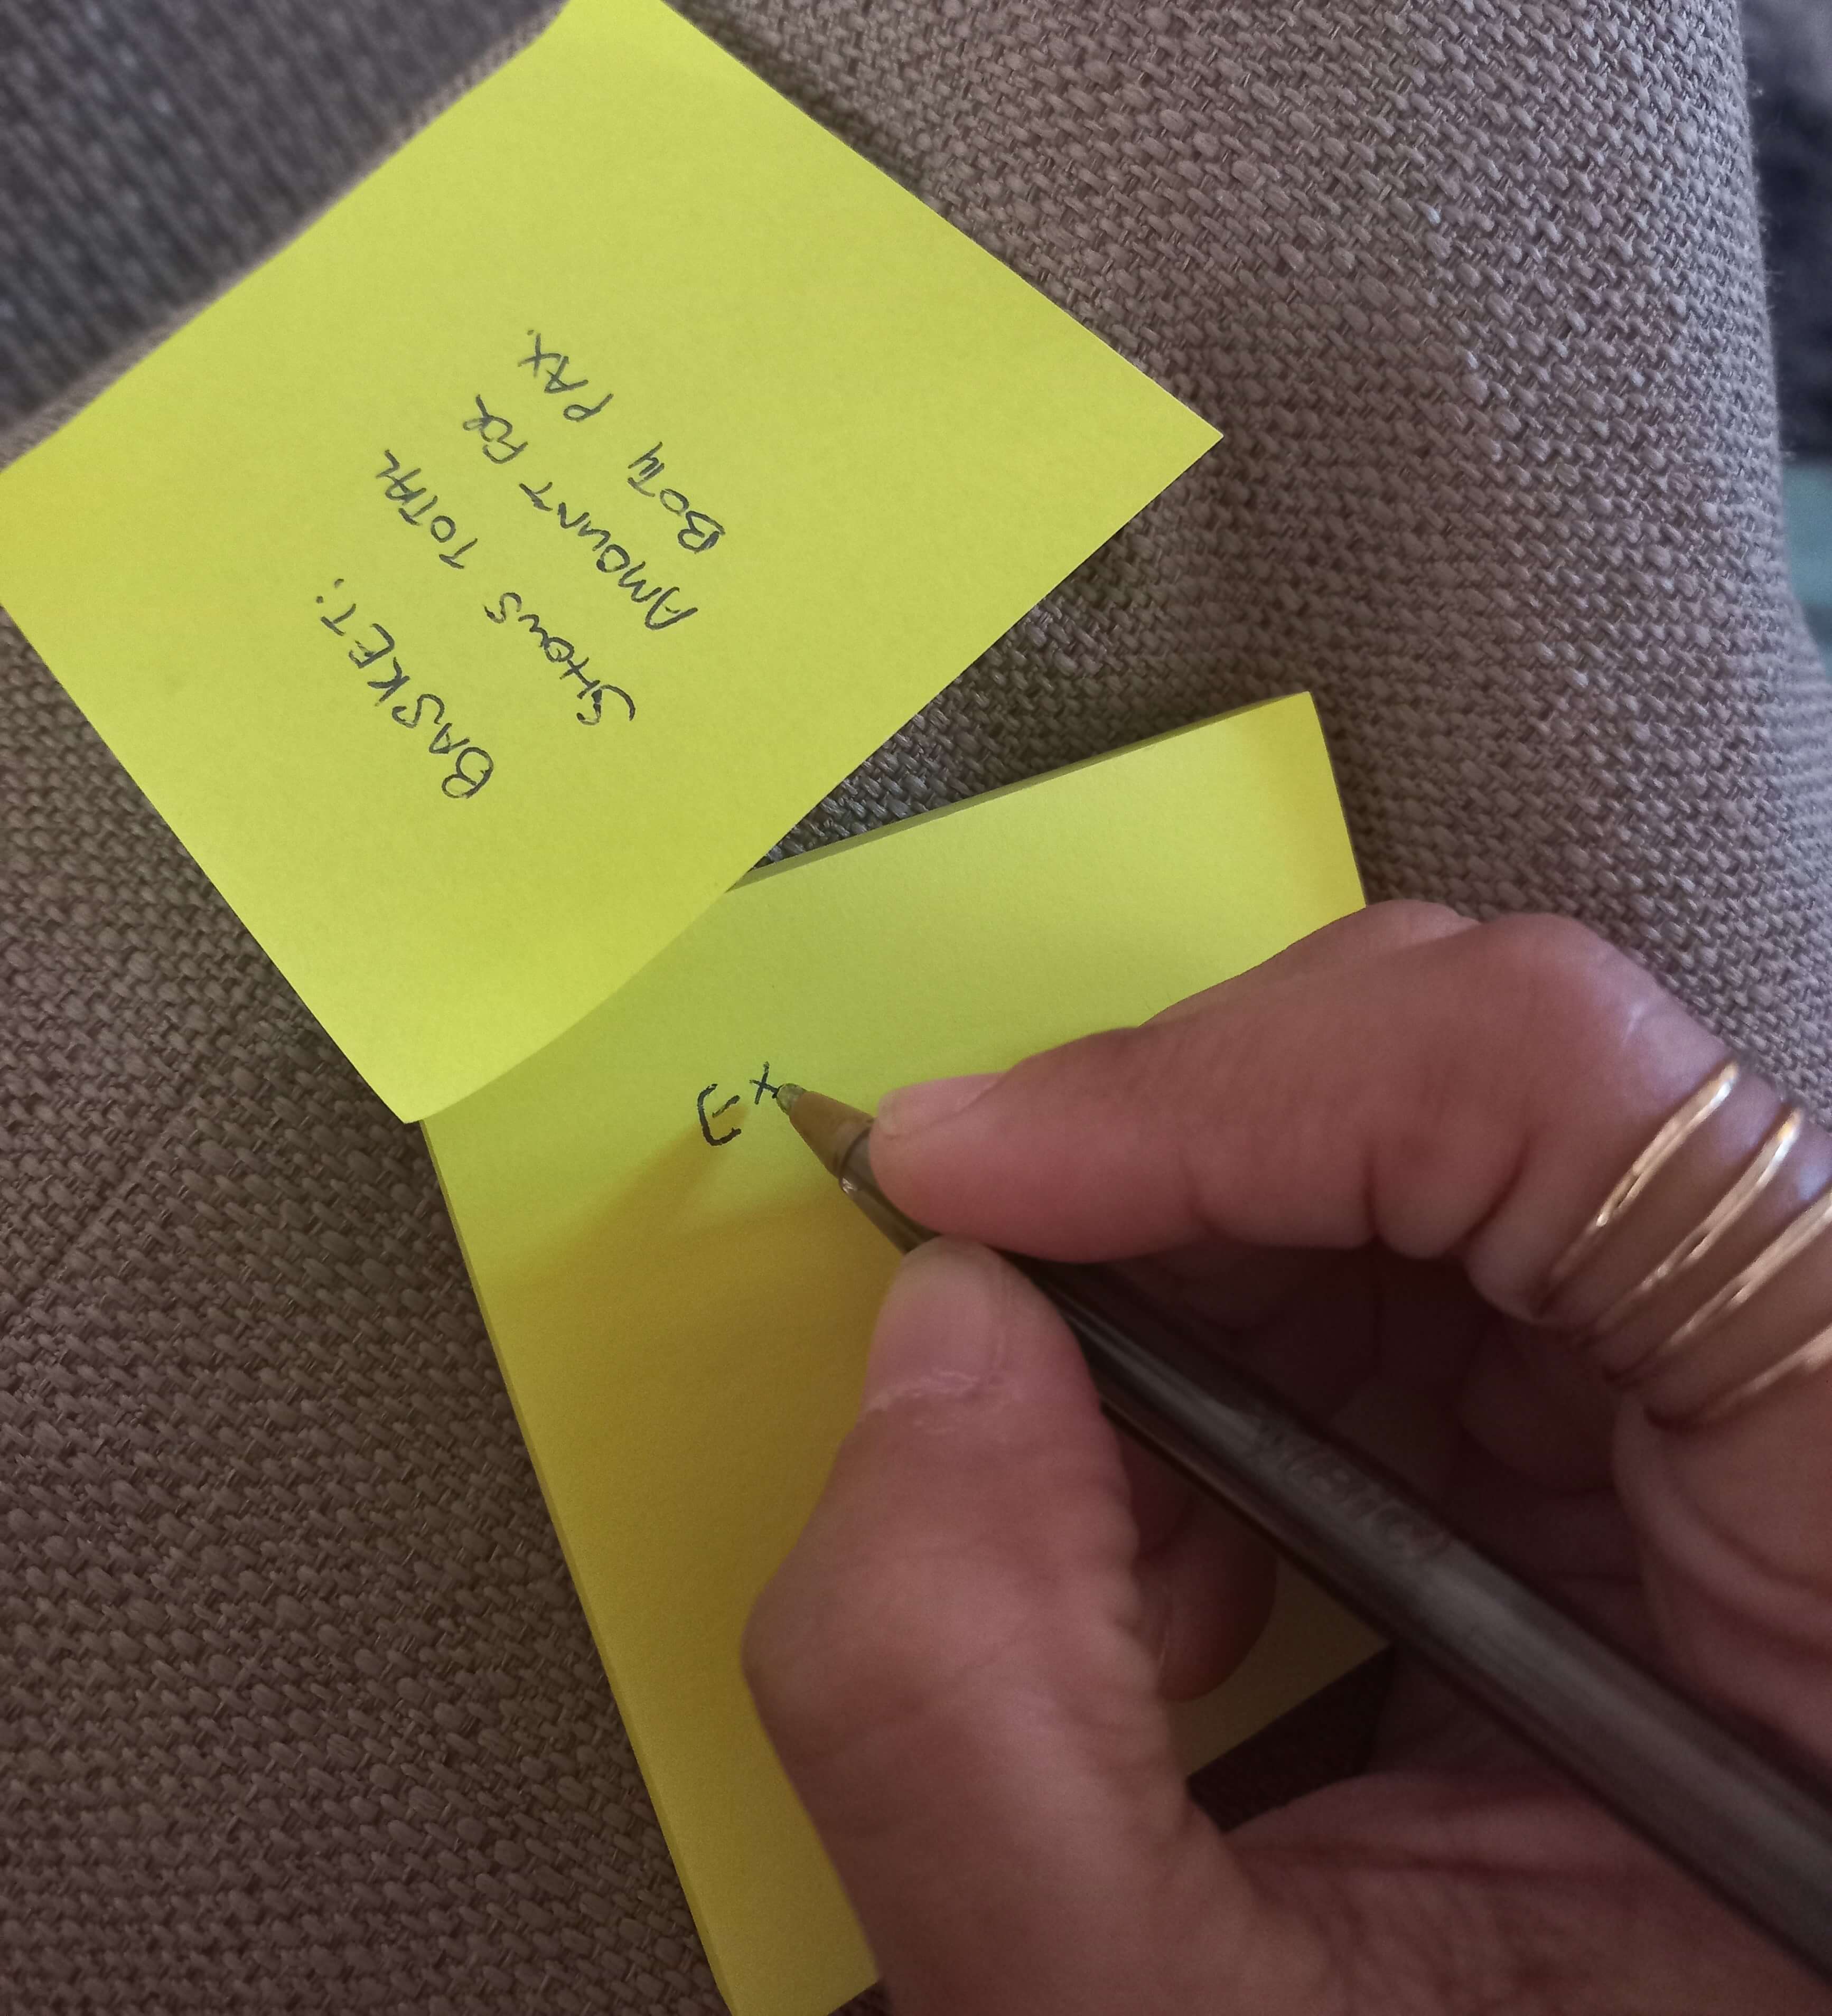 BASKET:
SHOWS TOTAL
AMOUNT FOR
BOTH PAX.
Ex